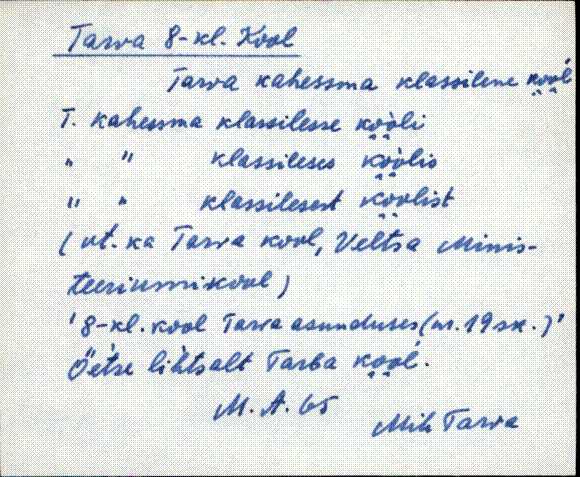 Tarva 8-kl. Kool
Tarva kahessma klassilene kool
T. kahessma klassilesse kooli
" " klassileses koolis
" " klassilesest koolist
(vt. ka Tarva kool, Veltsa Minis-
teeriumikool)
'8-kl. kool Tarva asunduses (nr. 19 sk.)'
Öetse lihtsalt Tarba kool.
M. A. 65
Mih Tarva